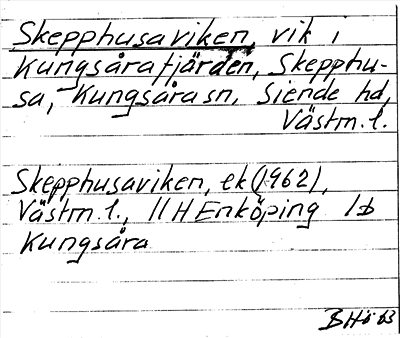 Skepphusaviken, vik i
Kungsårafjärden, Skepphu-
sa, Kungsåra sn, Siende hd,
Västm. l.
Skepphusaviken, ek (1962),
Västm. l., 11 H Enköping 1b
Kungsåra
BHö 63